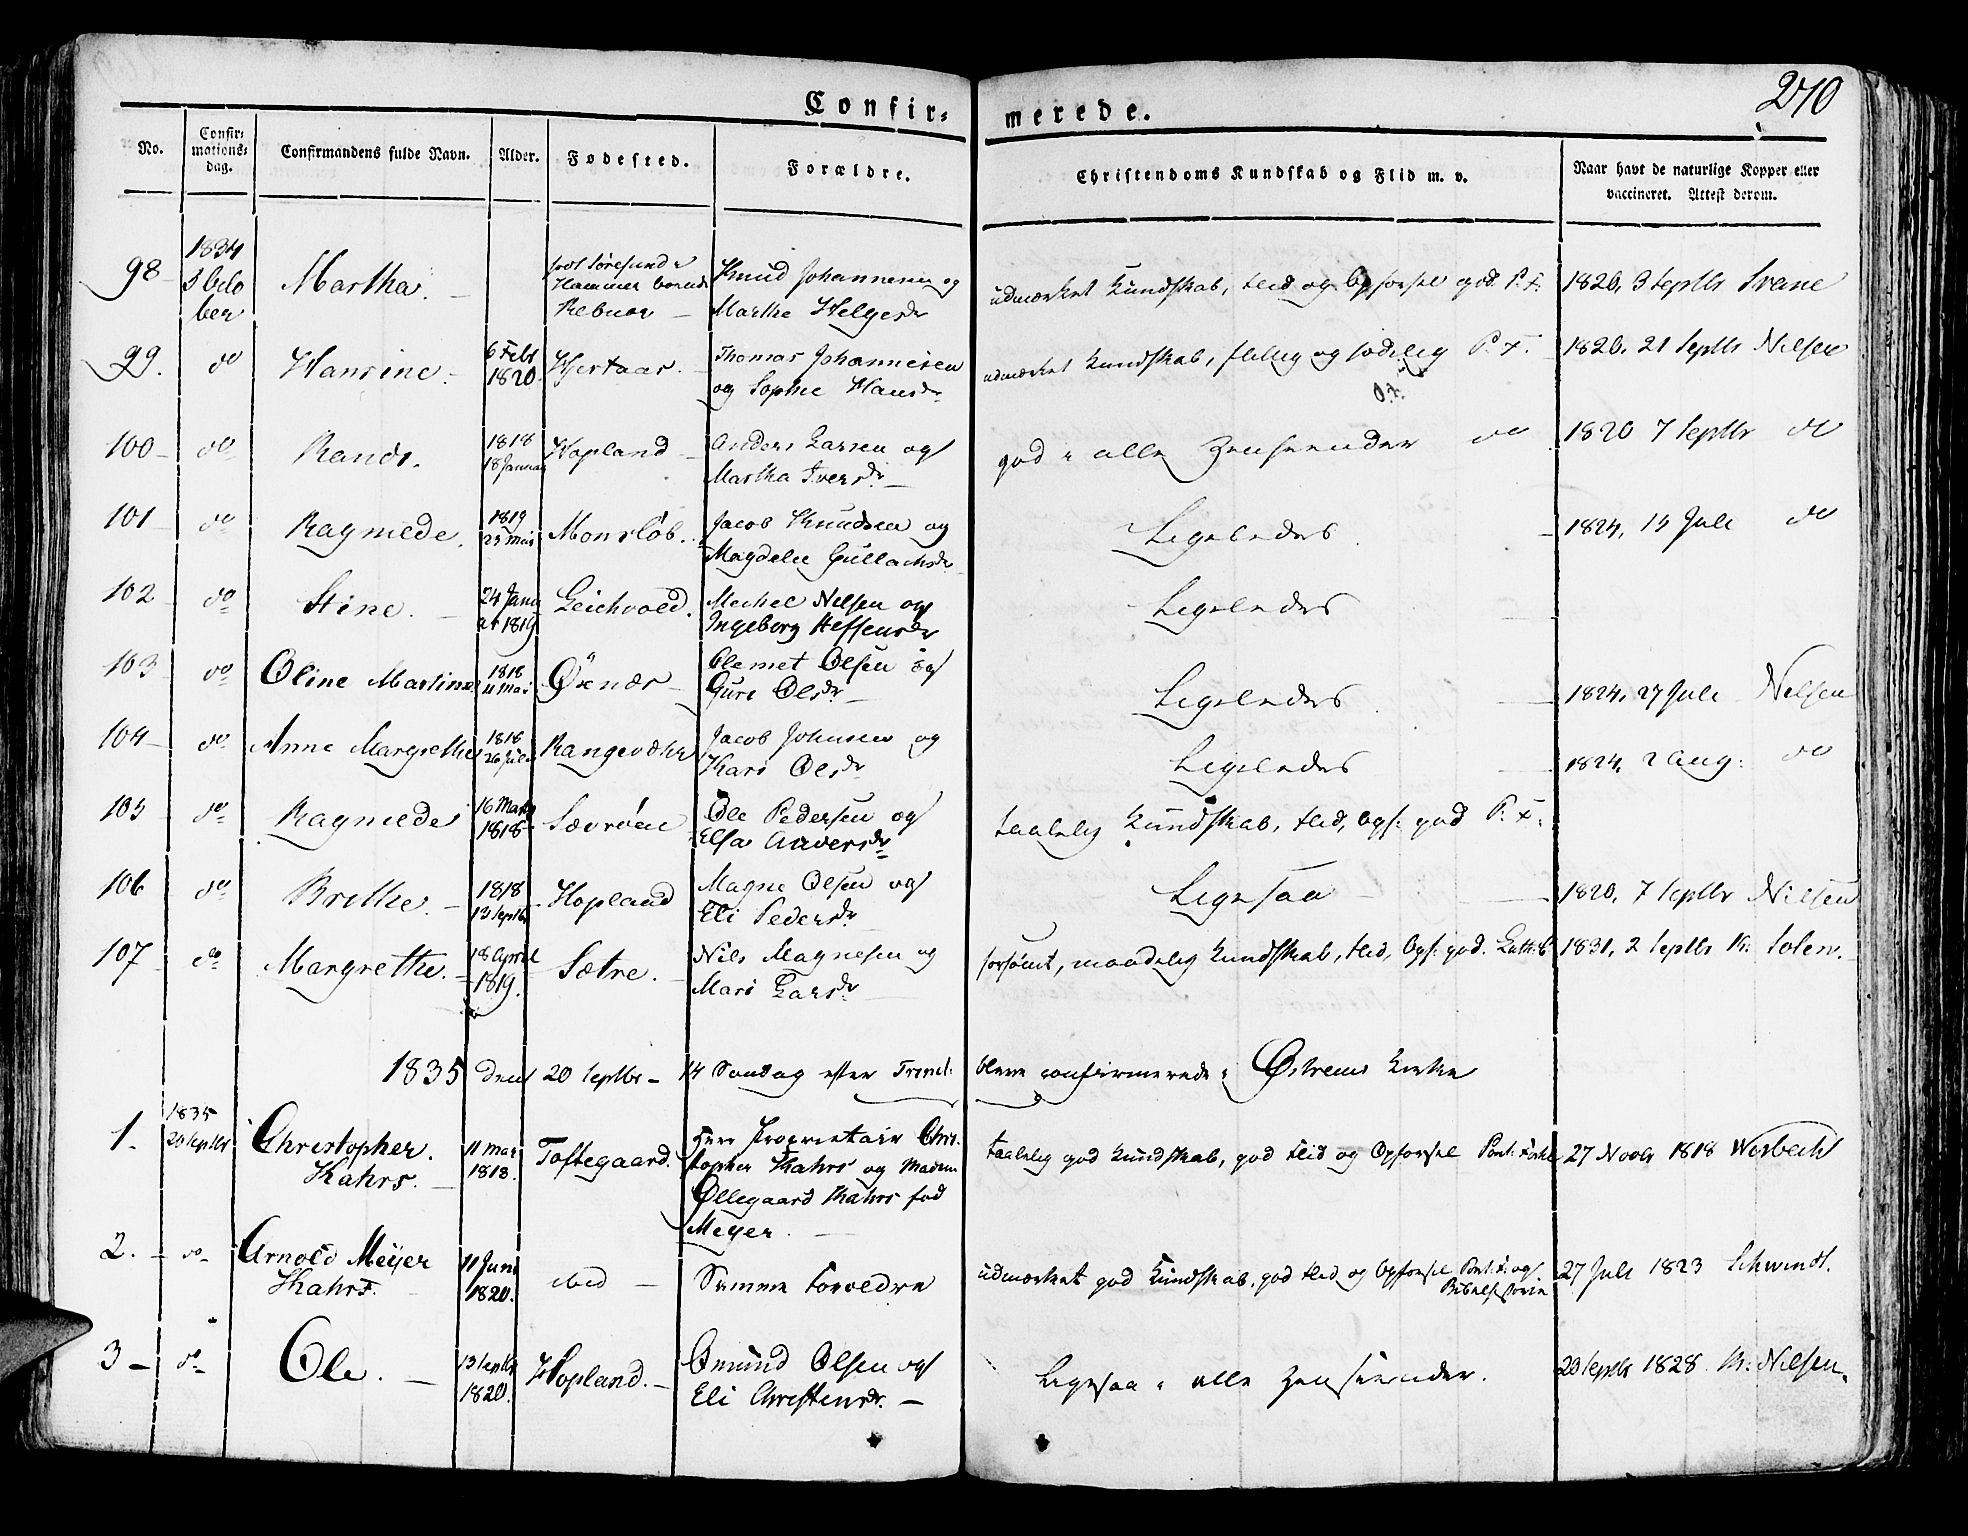 270
Confirmerede.
No.
Confirmationsdag.
Confirmandens fulde Navn.
Alder.
Fødested.
Forældre.
Christendoms Kundskab og Flid m. v.
Naar havt de naturlige Kopper eller vaccineret. Attest derom.
98 1834 October Martha. Hammer Knud Johannesen og Marthe Helgesdr udmærket Kundskab, Flid og Opførsel god. P. F. 1820, 3 Septbr Svane
99. do Hansine. 6 Febr 1820 Hjertaas. Thomas Johannesen og Sophie Hansdr udmærket Kundskab, flittig og sædelig P. F. 1820, 21 Septbr Nilsen
100 do Randi. 1818 18 Januar Hopland Anders Larsen og Martha Iversdr god i alle Henseender do 1820 7 Septbr do
101 do Ragnilde. 1819 Monsløb. Jacob Knudsen og Magdeli Gullachsdr Ligeledes 1824, 14 Juli do
102 do Stine. 24 Januar 1819 Leichvold. Michel Nilsen og Ingeborg Steffensdr Ligeledes
103 do Oline Martine 1818 11 Mai Øxnæs Clemet Olsen og Guri Olsdr Ligeledes 1824, 27 Juli Nilsen
104 do Anne Margrethe 1818 26 Juli Rangevæhr Jacob Johnsen og Kari Olsdr Ligeledes 1824, 2 Aug: do
105 do Ragnilde 16 Marts 1818 Sævrøen Ole Pedersen og Elsa Andersdr taalelig Kundskab, Flid, Opf: god P. F.
106 do Brithe. 1818 13 Septbr Hopland Magne Olsen og Eli Pedersdr Ligesaa 1820, 7 Septbr Nilsen
107 do Margrethe. 18 April 1819. Sætre. Nils Magnesen og Mari Larsdr forsømt, maadelig Kundskab, Flid, Opf: god. 1831, 2 Septbr Solen.
1835 den 20 Septbr 14 Søndag efter Trinit: bleve confirmerede i Østrem Kirke
1. 1835 20 Septbr Christopher Kahrs. 11 Mai 1818. Toftegaard. Herr Proprietair Christopher Kahrs og Madam Øllegaard Kahrs fød Meyer. taalelig god Kundskab, god Flid og Opførsel 27 Novbr 1818 Wesbecht
2. do Arnold Meyer Kahrs. 11 Juni 1820. ibid Samme Forældre udmærket god Kundskab, god Flid og Opførsel og Bibelhistorie 27 Juli 1823 Schwindt.
3 do Ole. 13 Septbr 1820. Hopland. Omund Olsen og Eli Christensdr. Ligesaa i alle Henseender. 20 Septbr 1828. Nilsen.